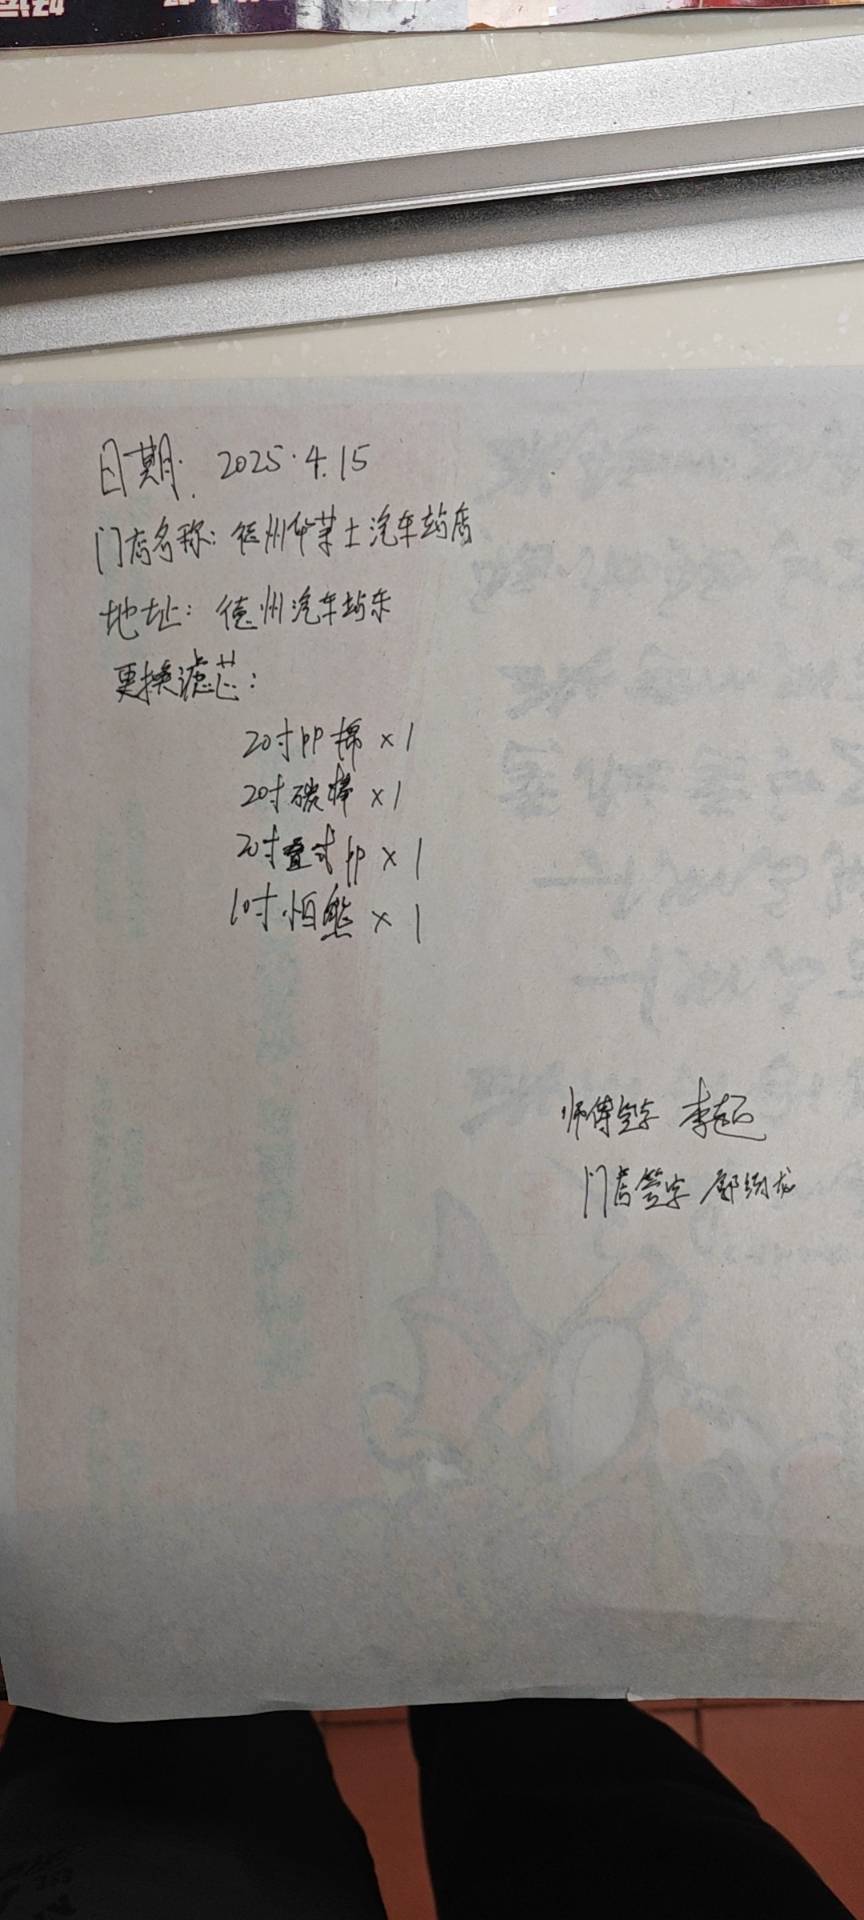 日期: 2025.4.15
门店名称: 德州华莱士汽车站店
地址: 德州汽车站东
更换滤芯:
20寸PP棉×1
20寸碳棒×1
20寸叠式PP×1
10寸怕熊×1
师傅签字 李超
门店签字